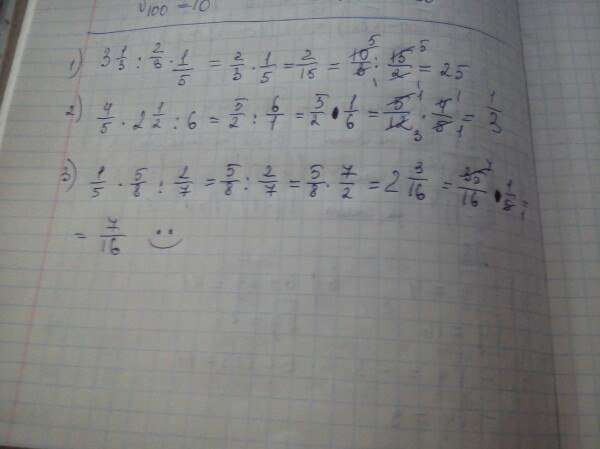 √100 = 10
1) 3 1/3 : 2/3 · 1/5 = 2/3 · 1/5 = 2/15 = 10/3 : 15/2 = 25
2) 4/5 · 2 1/2 : 6 = 5/2 : 6/1 = 5/2 · 1/6 = 5/12 · 4/5 = 1/3
3) 1/5 · 5/8 : 2/7 = 5/8 : 2/7 = 5/8 · 7/2 = 2 3/16 = 35/16 · 1/5 =
= 7/16